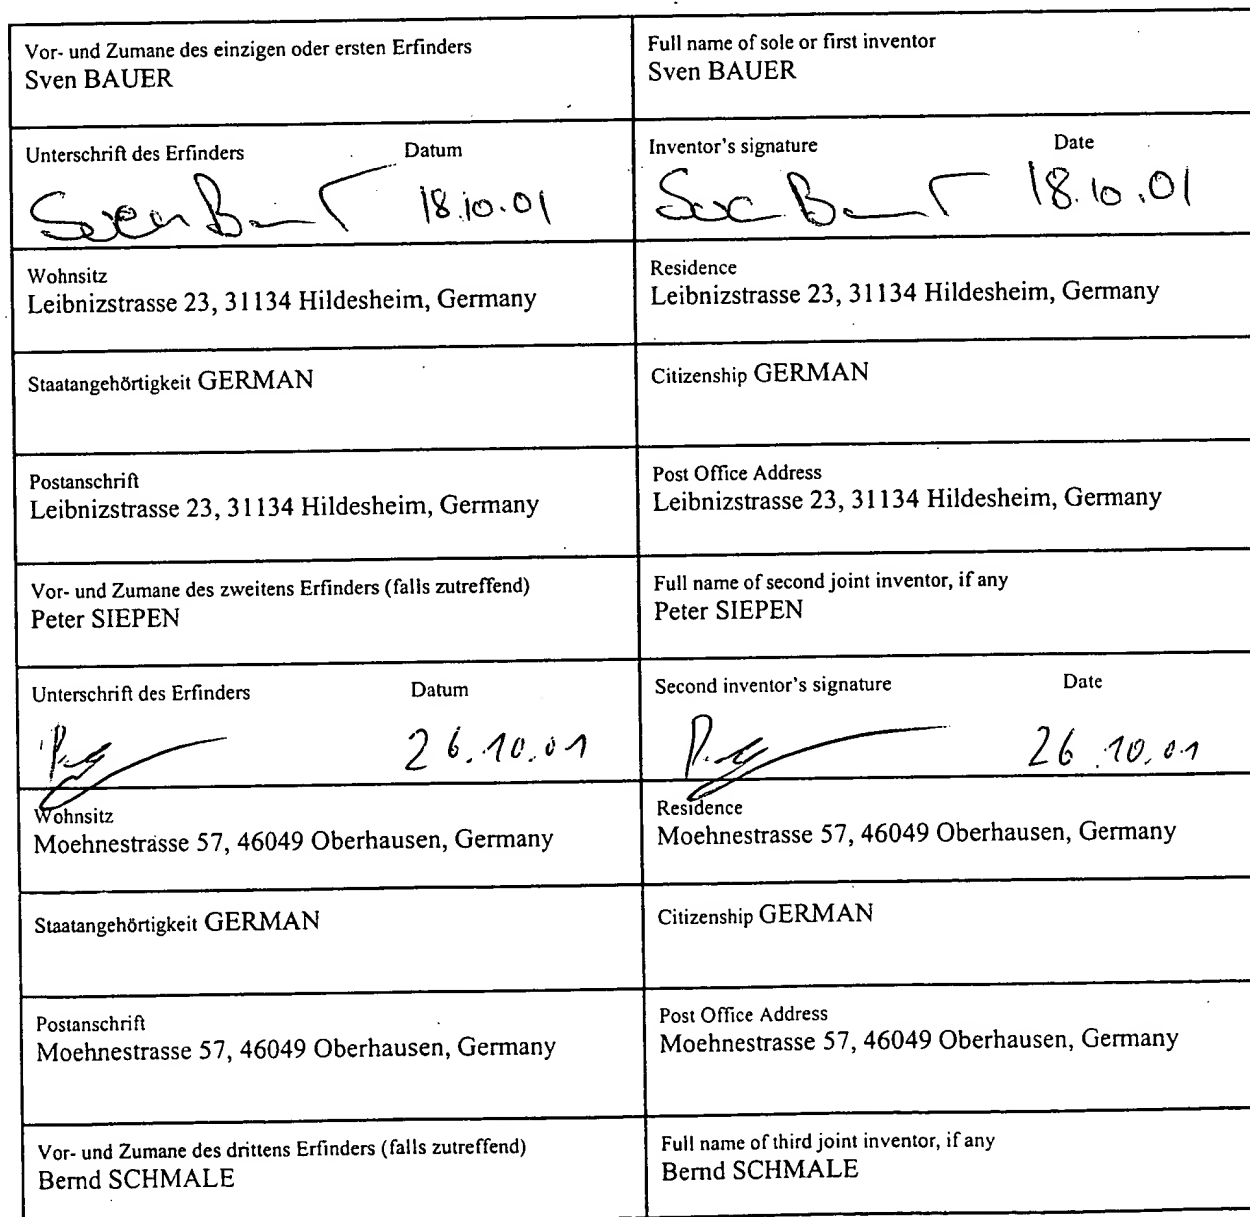 Vor- und Zumane des einzigen oder ersten Erfinders
Sven BAUER
Full name of sole or first inventor
Sven BAUER
Unterschrift des Erfinders Datum
Sven Bauer 18.10.01
Inventor's signature Date
18.10.01
Wohnsitz
Leibnizstrasse 23, 31134 Hildesheim, Germany
Residence
Leibnizstrasse 23, 31134 Hildesheim, Germany
Staatangehörtigkeit GERMAN
Citizenship GERMAN
Postanschrift
Leibnizstrasse 23, 31134 Hildesheim, Germany
Post Office Address
Leibnizstrasse 23, 31134 Hildesheim, Germany
Vor- und Zumane des zweitens Erfinders (falls zutreffend)
Peter SIEPEN
Full name of second joint inventor, if any
Peter SIEPEN
Unterschrift des Erfinders Datum
26.10.01
Second inventor's signature Date
26.10.01
Wohnsitz
Moehnestrasse 57, 46049 Oberhausen, Germany
Residence
Moehnestrasse 57, 46049 Oberhausen, Germany
Staatangehörtigkeit GERMAN
Citizenship GERMAN
Postanschrift
Moehnestrasse 57, 46049 Oberhausen, Germany
Post Office Address
Moehnestrasse 57, 46049 Oberhausen, Germany
Vor- und Zumane des drittens Erfinders (falls zutreffend)
Bernd SCHMALE
Full name of third joint inventor, if any
Bernd SCHMALE